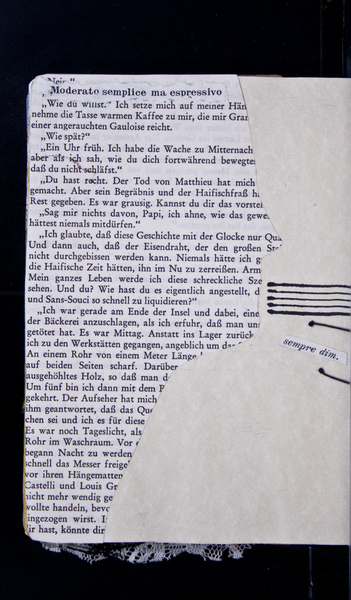 „Nein."
Moderato semplice ma espressivo
„Wie du willst." Ich setze mich auf meiner Hän
nehme die Tasse warmen Kaffee zu mir, die mir Gran
einer angerauchten Gauloise reicht.
„Wie spät?"
„Ein Uhr früh. Ich habe die Wache zu Mitternach
aber als ich sah, wie du dich fortwährend bewegte
daß du nicht schläfst."
„Du hast recht. Der Tod von Matthieu hat mich
gemacht. Aber sein Begräbnis und der Haifischfraß h
Rest gegeben. Es war grausig. Kannst du dir das vorstel
„Sag mir nichts davon, Papi, ich ahne, wie das gewe
hättest niemals mitdürfen."
„Ich glaubte, daß diese Geschichte mit der Glocke nur Qua
Und dann auch, daß der Eisendraht, der den großen St
nicht durchgebissen werden kann. Niemals hätte ich g
die Haifische Zeit hätten, ihn im Nu zu zerreißen. Arm
Mein ganzes Leben werde ich diese schreckliche Sze
sehen. Und du? Wie hast du es eigentlich angestellt, d
und Sans-Souci so schnell zu liquidieren?"
„Ich war gerade am Ende der Insel und dabei, eine
der Bäckerei anzuschlagen, als ich erfuhr, daß man un
getötet hat. Es war Mittag. Anstatt ins Lager zurück
ich zu den Werkstätten gegangen, angeblich um da
An einem Rohr von einem Meter Länge
auf beiden Seiten scharf. Darüber
ausgehöhltes Holz, so daß man d
Um fünf bin ich dann mit dem
gekehrt. Der Aufseher hat mich
ihm geantwortet, daß das Que
chen sei und ich es für diese
Es war noch Tageslicht, als
Rohr im Waschraum. Vor
begann Nacht zu werden
schnell das Messer freige
vor ihren Hängematten
Castelli und Louis Gr
nicht mehr wendig ge
wollte handeln, bevo
ingezogen wirst. I
ir hast, könnte dir
sempre dim.